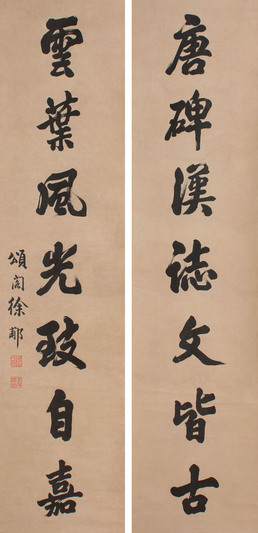 唐碑漢誌文皆古
雲葉風光致自嘉
頌閣徐郙